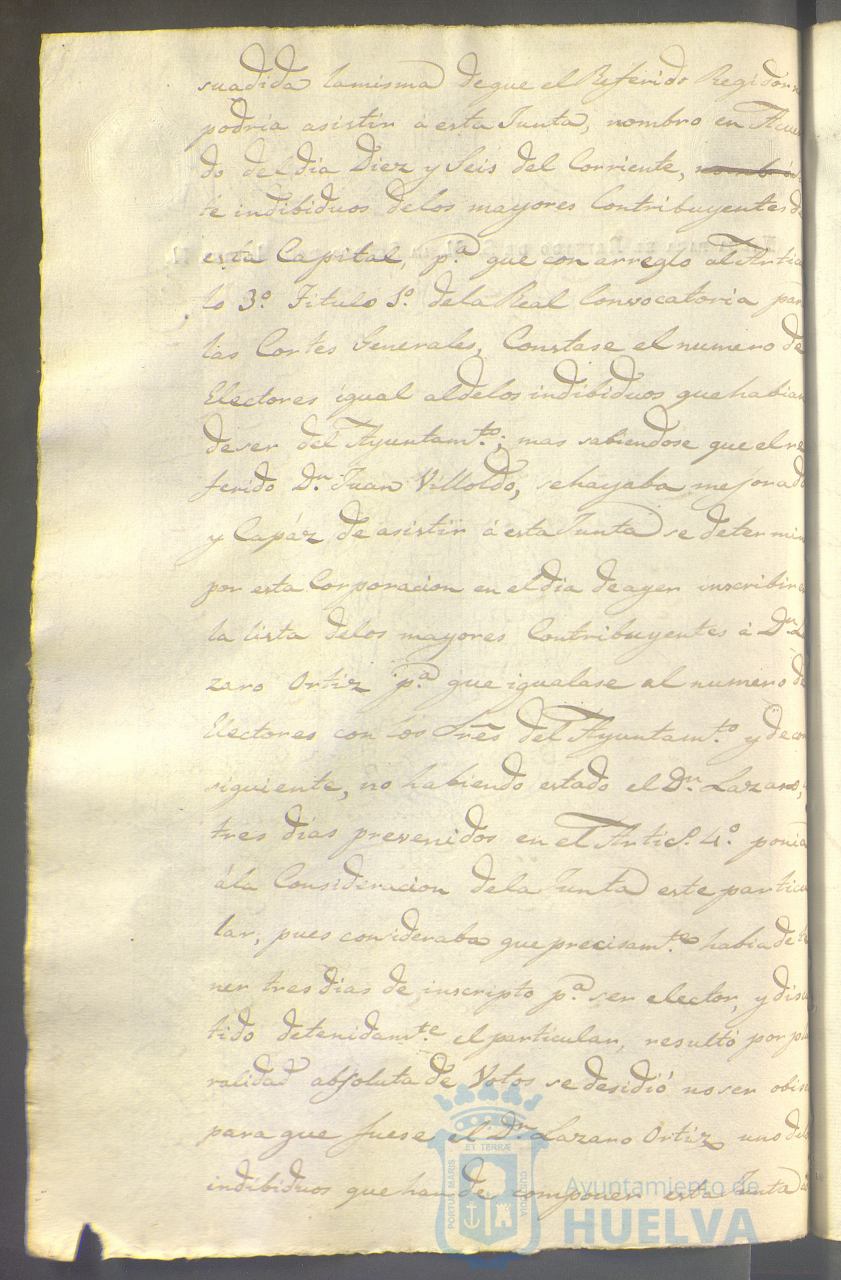 suadida lamisma deque el Referido Regidor
podria asistir á esta Junta, nombro en Acuer
do del dia Diez y Seis del Corriente,
te indibiduos delos mayores Contribuyentes de
esta Capital, p.ª que con arreglo al Artic
lo 3.º Titulo 1.º dela Real Convocatoria para
las Cortes Generales, Constase el numero de
Electores igual aldelos indibiduos que habian
deser del Ayuntam.to; mas sabiendose que el re
ferido D.n Juan Villoldo, sehayaba mejorado
y Capáz de asistir á esta Junta se determin
por esta Corporacion en el dia de ayer inscribir en
la lista delos mayores Contribuyentes á D.n La
zaro Ortiz p.ª que igualase al numero de
Electores con los Sres del Ayuntam.to y decon
siguiente, no habiendo estado el D.n Lazaro,
tres dias prevenidos en el Artic.o 4.º ponia
ála Consideracion dela Junta este particu
lar, pues consideraba que precisam.te habia de te
ner tres dias de inscripto p.ª ser elector, y discu
tido detenidam.te el particular, resultó por plu
ralidad absoluta de Votos se desidió no ser obice
para que fuese el D.n Lazaro Ortiz uno delos
indibiduos que han de componer esta Junta
ET TERRAE
PORTUS MARIS
CUSTODIA
Ayuntamiento de
HUELVA